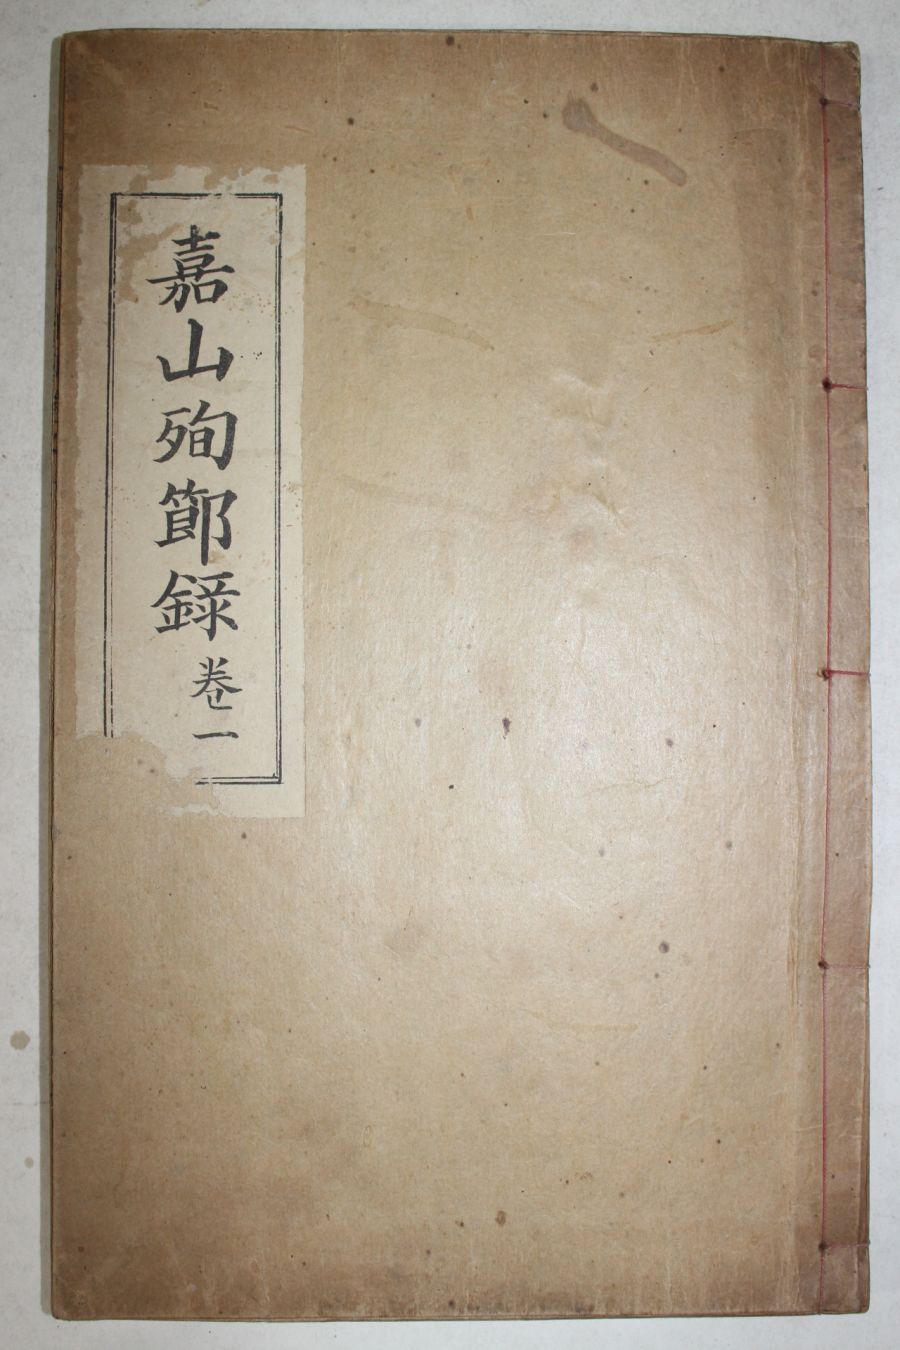 嘉山殉節錄 卷一